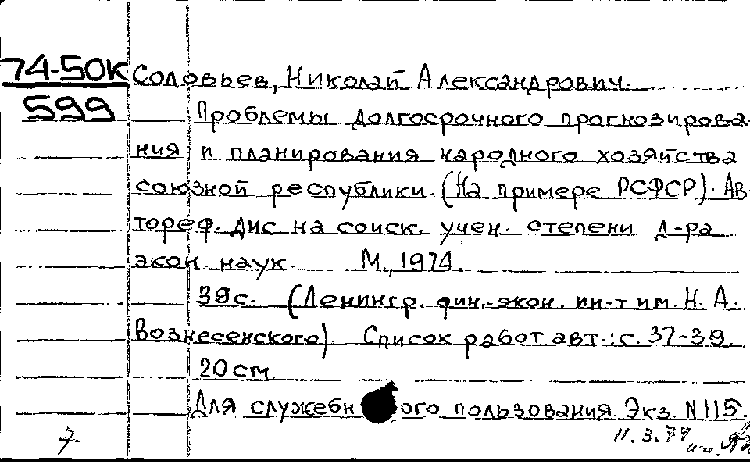 74-50К
599
Соловьев, Николай Александрович.
Проблемы долгосрочного прогнозирова-
ния и планирования народного хозяйства
союзной республики. (На примере РСФСР). Ав
тореф. дис на соиск. учен. степени д-ра
экон наук. М., 1974.
39с. (Ленингр. фин.-экон. ин-т им. Н. А.
Вознесенского) Список работ авт.: с. 37-39.
20 см
Для служебн ого пользования. Экз. N 115.
7
11.3.77